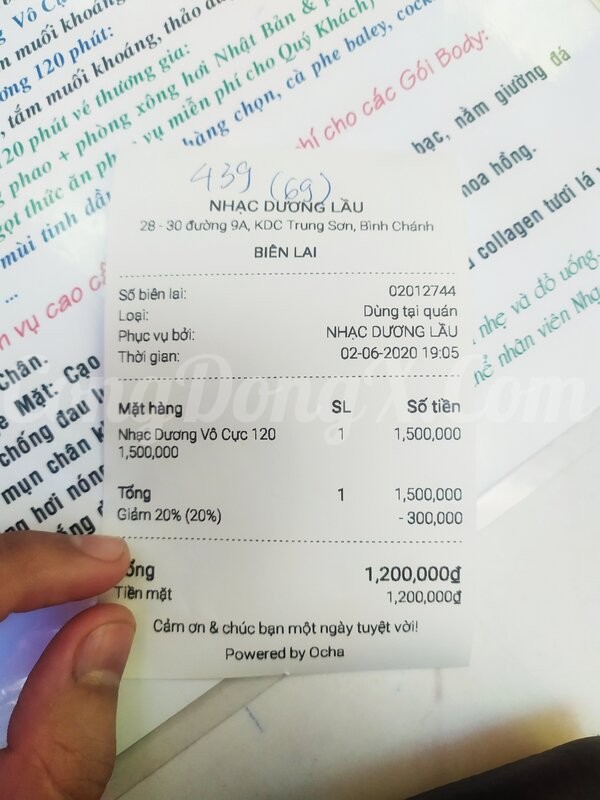 g Vô Cực
muối khoáng, thảo dư
ơng 120 phút:
, tắm muối khoáng,
120 phút vé thương gia:
g phao + phòng xông hơi Nhật Bản &
gọt thức ăn ph vụ miễn phí cho Quý Khách)
mùi tinh dầu
hàng chọn, cà phe baley, cock
hí cho các Gói Body:
bạc, nằm giường đá
hoa hồng.
collagen tươi lá
nhẹ và đồ uống,
nể nhân viên Nhạ
...
n vụ cao cấ
Chân.
e Mặt: Cạo
chống đau
mụn chân
g hơi nóng
439 (69)
NHẠC DƯƠNG LẦU
28 - 30 đường 9A, KDC Trung Sơn, Bình Chánh
BIÊN LAI
Số biên lai: 02012744
Loại: Dùng tại quán
Phục vụ bởi: NHẠC DƯƠNG LẦU
Thời gian: 02-06-2020 19:05
CongDongX.Com
Mặt hàng SL Số tiền
Nhạc Dương Vô Cực 120 1 1,500,000
1,500,000
Tổng 1 1,500,000
Giảm 20% (20%) - 300,000
ổng 1,200,000₫
Tiền mặt 1,200,000₫
Cảm ơn & chúc bạn một ngày tuyệt vời!
Powered by Ocha